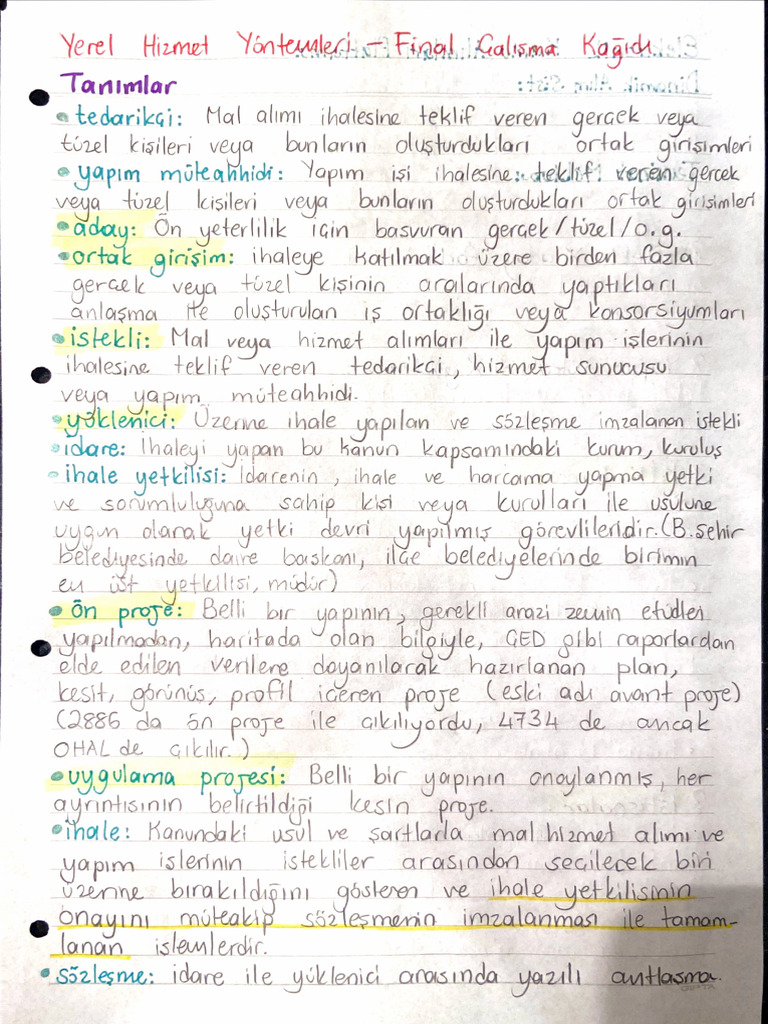 Yerel Hizmet Yöntemleri – Final Çalışma Kağıdı
Tanımlar
• tedarikçi: Mal alımı ihalesine teklif veren gerçek veya
tüzel kişileri veya bunların oluşturdukları ortak girişimleri
• yapım müteahhidi: Yapım işi ihalesine teklif veren gerçek
veya tüzel kişileri veya bunların oluşturdukları ortak girişimleri
• aday: Ön yeterlilik için başvuran gerçek/tüzel/o.g.
• ortak girişim: ihaleye katılmak üzere birden fazla
gerçek veya tüzel kişinin aralarında yaptıkları
anlaşma ile oluşturulan iş ortaklığı veya konsorsiyumları
• istekli: Mal veya hizmet alımları ile yapım işlerinin
ihalesine teklif veren tedarikçi, hizmet sunucusu
veya yapım müteahhidi.
• yüklenici: Üzerine ihale yapılan ve sözleşme imzalanan istekli
• idare: İhaleyi yapan bu kanun kapsamındaki kurum, kuruluş
• ihale yetkilisi: İdarenin, ihale ve harcama yapma yetki
ve sorumluluğuna sahip kişi veya kurulları ile usulüne
uygun olarak yetki devri yapılmış görevlileridir. (B.Şehir
belediyesinde daire başkanı, ilçe belediyelerinde birimin
en üst yetkilisi, müdür)
• ön proje: Belli bir yapının, gerekli arazi zemin etüdleri
yapılmadan, haritada olan bilgiyle, ÇED gibi raporlardan
elde edilen verilere dayanılarak hazırlanan plan,
kesit, görünüş, profil içeren proje (eski adı avant proje)
(2886 da ön proje ile çıkılıyordu, 4734 de ancak
OHAL de çıkılır.)
• uygulama projesi: Belli bir yapının onaylanmış, her
ayrıntısının belirtildiği kesin proje.
• ihale: Kanundaki usul ve şartlarla mal hizmet alımı ve
yapım işlerinin istekliler arasından seçilecek biri
üzerine bırakıldığını gösteren ve ihale yetkilisinin
onayını müteakip sözleşmenin imzalanması ile tamam-
lanan işlemlerdir.
• sözleşme: idare ile yüklenici arasında yazılı antlaşma.